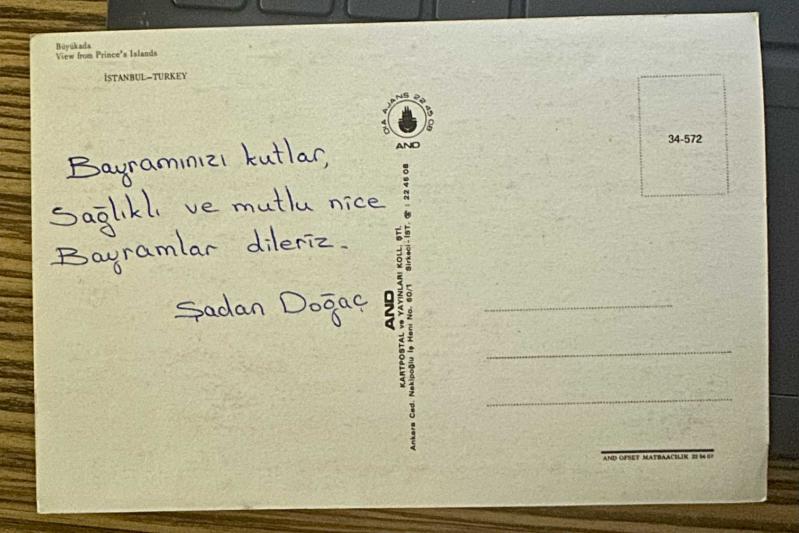 Büyükada
View from Prince's Islands
İSTANBUL–TURKEY
Bayramınızı kutlar,
Sağlıklı ve mutlu nice
Bayramlar dileriz.
Şadan Doğaç
AJANS 22 45 08
AND
AND
KARTPOSTAL ve YAYINLARI KOLL. ŞTİ.
Ankara Cad. Nekipoğlu İş Hanı No. 60/1 Sirkeci-İST. ☎ : 22 45 08
34-572
AND OFSET MATBAACILIK